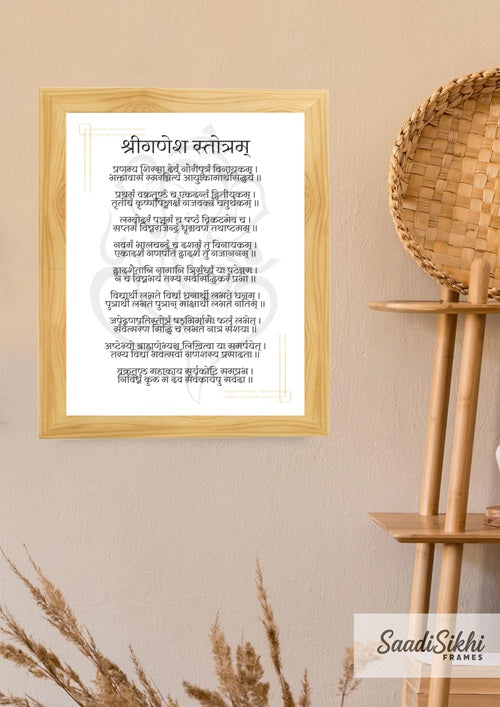 श्रीगणेश स्तोत्रम्
प्रणम्य शिरसा देवं गौरीपुत्रं विनायकम् ।
भक्तावासं स्मरेन्नित्यं आयुःकामार्थसिद्धये ॥
प्रथमं वक्रतुण्डं च एकदन्तं द्वितीयकम् ।
तृतीयं कृष्णपिङ्गाक्षं गजवक्त्रं चतुर्थकम् ॥
लम्बोदरं पञ्चमं च षष्ठं विकटमेव च ।
सप्तमं विघ्नराजेन्द्रं धूम्रवर्णं तथाष्टमम् ॥
नवमं भालचन्द्रं च दशमं तु विनायकम् ।
एकादशं गणपतिं द्वादशं तु गजाननम् ॥
द्वादशैतानि नामानि त्रिसंध्यं यः पठेन्नरः ।
न च विघ्नभयं तस्य सर्वसिद्धिकरं प्रभो ॥
विद्यार्थी लभते विद्यां धनार्थी लभते धनम् ।
पुत्रार्थी लभते पुत्रान् मोक्षार्थी लभते गतिम् ॥
जपेद्गणपतिस्तोत्रं षड्भिर्मासैः फलं लभेत् ।
संवत्सरेण सिद्धिं च लभते नात्र संशयः ॥
अष्टेभ्यो ब्राह्मणेभ्यश्च लिखित्वा यः समर्पयेत् ।
तस्य विद्या भवेत्सर्वा गणेशस्य प्रसादतः ॥
वक्रतुण्ड महाकाय सूर्यकोटि समप्रभ ।
निर्विघ्नं कुरु मे देव सर्वकार्येषु सर्वदा ॥
SaadiSikhi
FRAMES